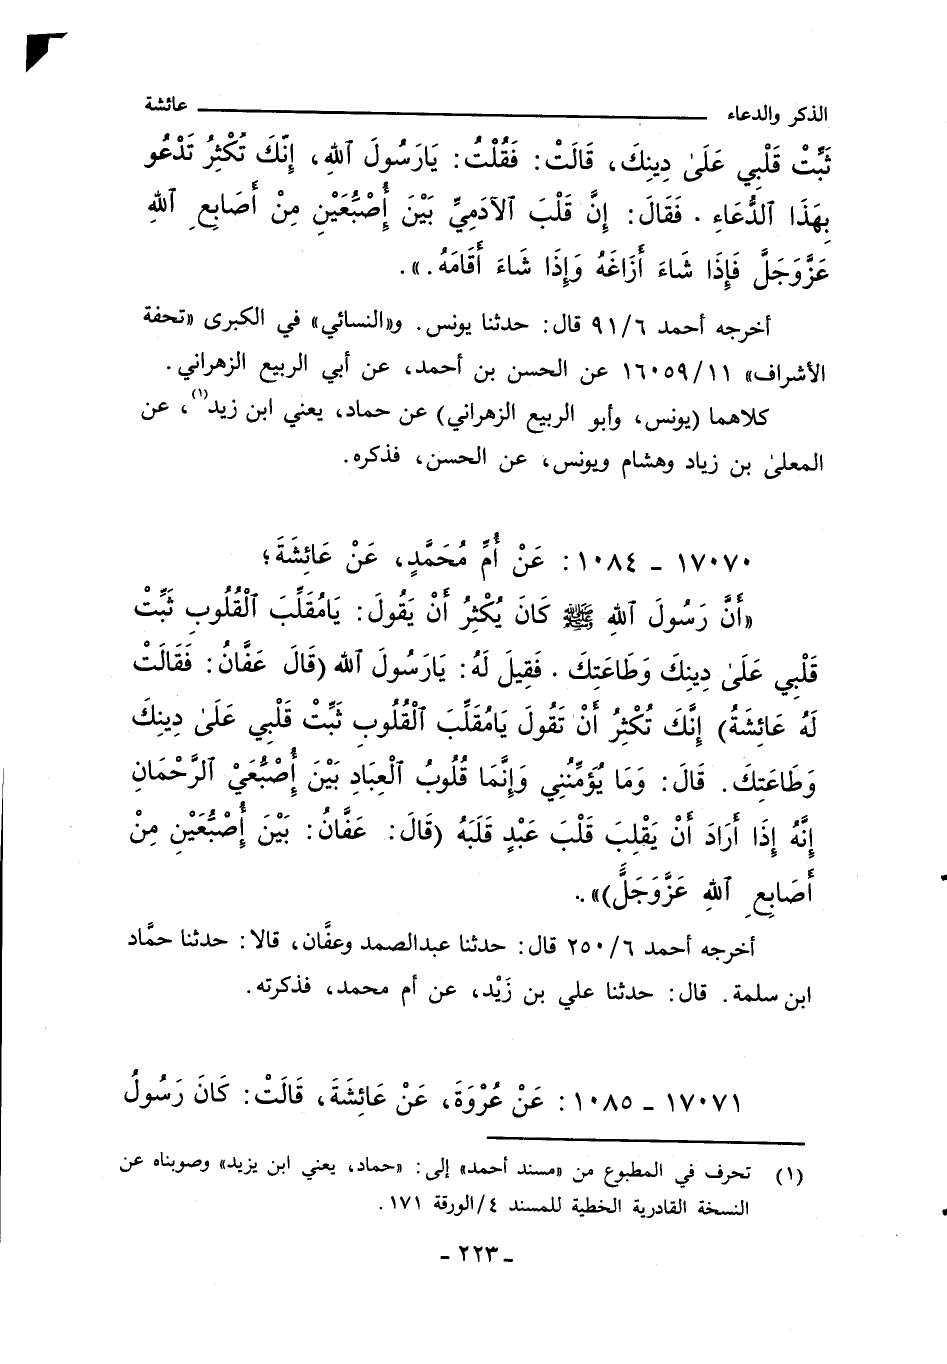 الذكر والدعاء عائشة
ثَبِّتْ قَلْبِي عَلَىٰ دِينِكَ، قَالَتْ: فَقُلْتُ: يَارَسُولَ ٱللهِ، إِنَّكَ تُكْثِرُ تَدْعُو
بِهَذَا ٱلدُّعَاءِ. فَقَالَ: إِنَّ قَلْبَ ٱلآدَمِيِّ بَيْنَ أُصْبُعَيْنِ مِنْ أَصَابِعِ ٱللهِ
عَزَّوَجَلَّ فَإِذَا شَاءَ أَزَاغَهُ وَإِذَا شَاءَ أَقَامَهُ.».
أخرجه أحمد ٩١/٦ قال: حدثنا يونس. و«النسائي» في الكبرى «تحفة
الأشراف» ١٦٠٥٩/١١ عن الحسن بن أحمد، عن أبي الربيع الزهراني.
كلاهما (يونس، وأبو الربيع الزهراني) عن حماد، يعني ابن زيد(١)، عن
المعلىٰ بن زياد وهشام ويونس، عن الحسن، فذكره.
١٧٠٧٠ - ١٠٨٤: عَنْ أُمِّ مُحَمَّدٍ، عَنْ عَائِشَةَ؛
«أَنَّ رَسُولَ ٱللهِ ﷺ كَانَ يُكْثِرُ أَنْ يَقُولَ: يَامُقَلِّبَ ٱلْقُلُوبِ ثَبِّتْ
قَلْبِي عَلَىٰ دِينِكَ وَطَاعَتِكَ. فَقِيلَ لَهُ: يَارَسُولَ ٱلله (قَالَ عَفَّانُ: فَقَالَتْ
لَهُ عَائِشَةُ) إِنَّكَ تُكْثِرُ أَنْ تَقُولَ يَامُقَلِّبَ ٱلْقُلُوبِ ثَبِّتْ قَلْبِي عَلَىٰ دِينِكَ
وَطَاعَتِكَ. قَالَ: وَمَا يُؤَمِّنُنِي وَإِنَّمَا قُلُوبُ ٱلْعِبَادِ بَيْنَ أُصْبُعَيْ ٱلرَّحْمَانِ
إِنَّهُ إِذَا أَرَادَ أَنْ يَقْلِبَ قَلْبَ عَبْدٍ قَلَبَهُ (قَالَ: عَفَّانُ: بَيْنَ أُصْبُعَيْنِ مِنْ
أَصَابِعِ ٱللهِ عَزَّوَجَلَّ)»..
أخرجه أحمد ٢٥٠/٦ قال: حدثنا عبدالصمد وعفَّان، قالا: حدثنا حمَّاد
ابن سلمة. قال: حدثنا علي بن زَيْد، عن أم محمد، فذكرته.
١٧٠٧١ - ١٠٨٥: عَنْ عُرْوَةَ، عَنْ عَائِشَةَ، قَالَتْ: كَانَ رَسُولُ
(١) تحرف في المطبوع من «مسند أحمد» إلى: «حماد، يعني ابن يزيد» وصوبناه عن
النسخة القادرية الخطية للمسند ٤/الورقة ١٧١.
- ٢٢٣ -